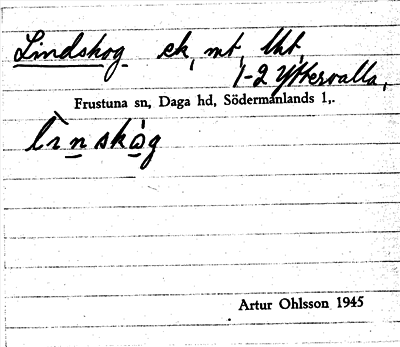 Lindskog ek, mt, lht,
1-2 Yttervalla,
Frustuna sn, Daga hd, Södermanlands l,.
lìnskòg
Artur Ohlsson 1945